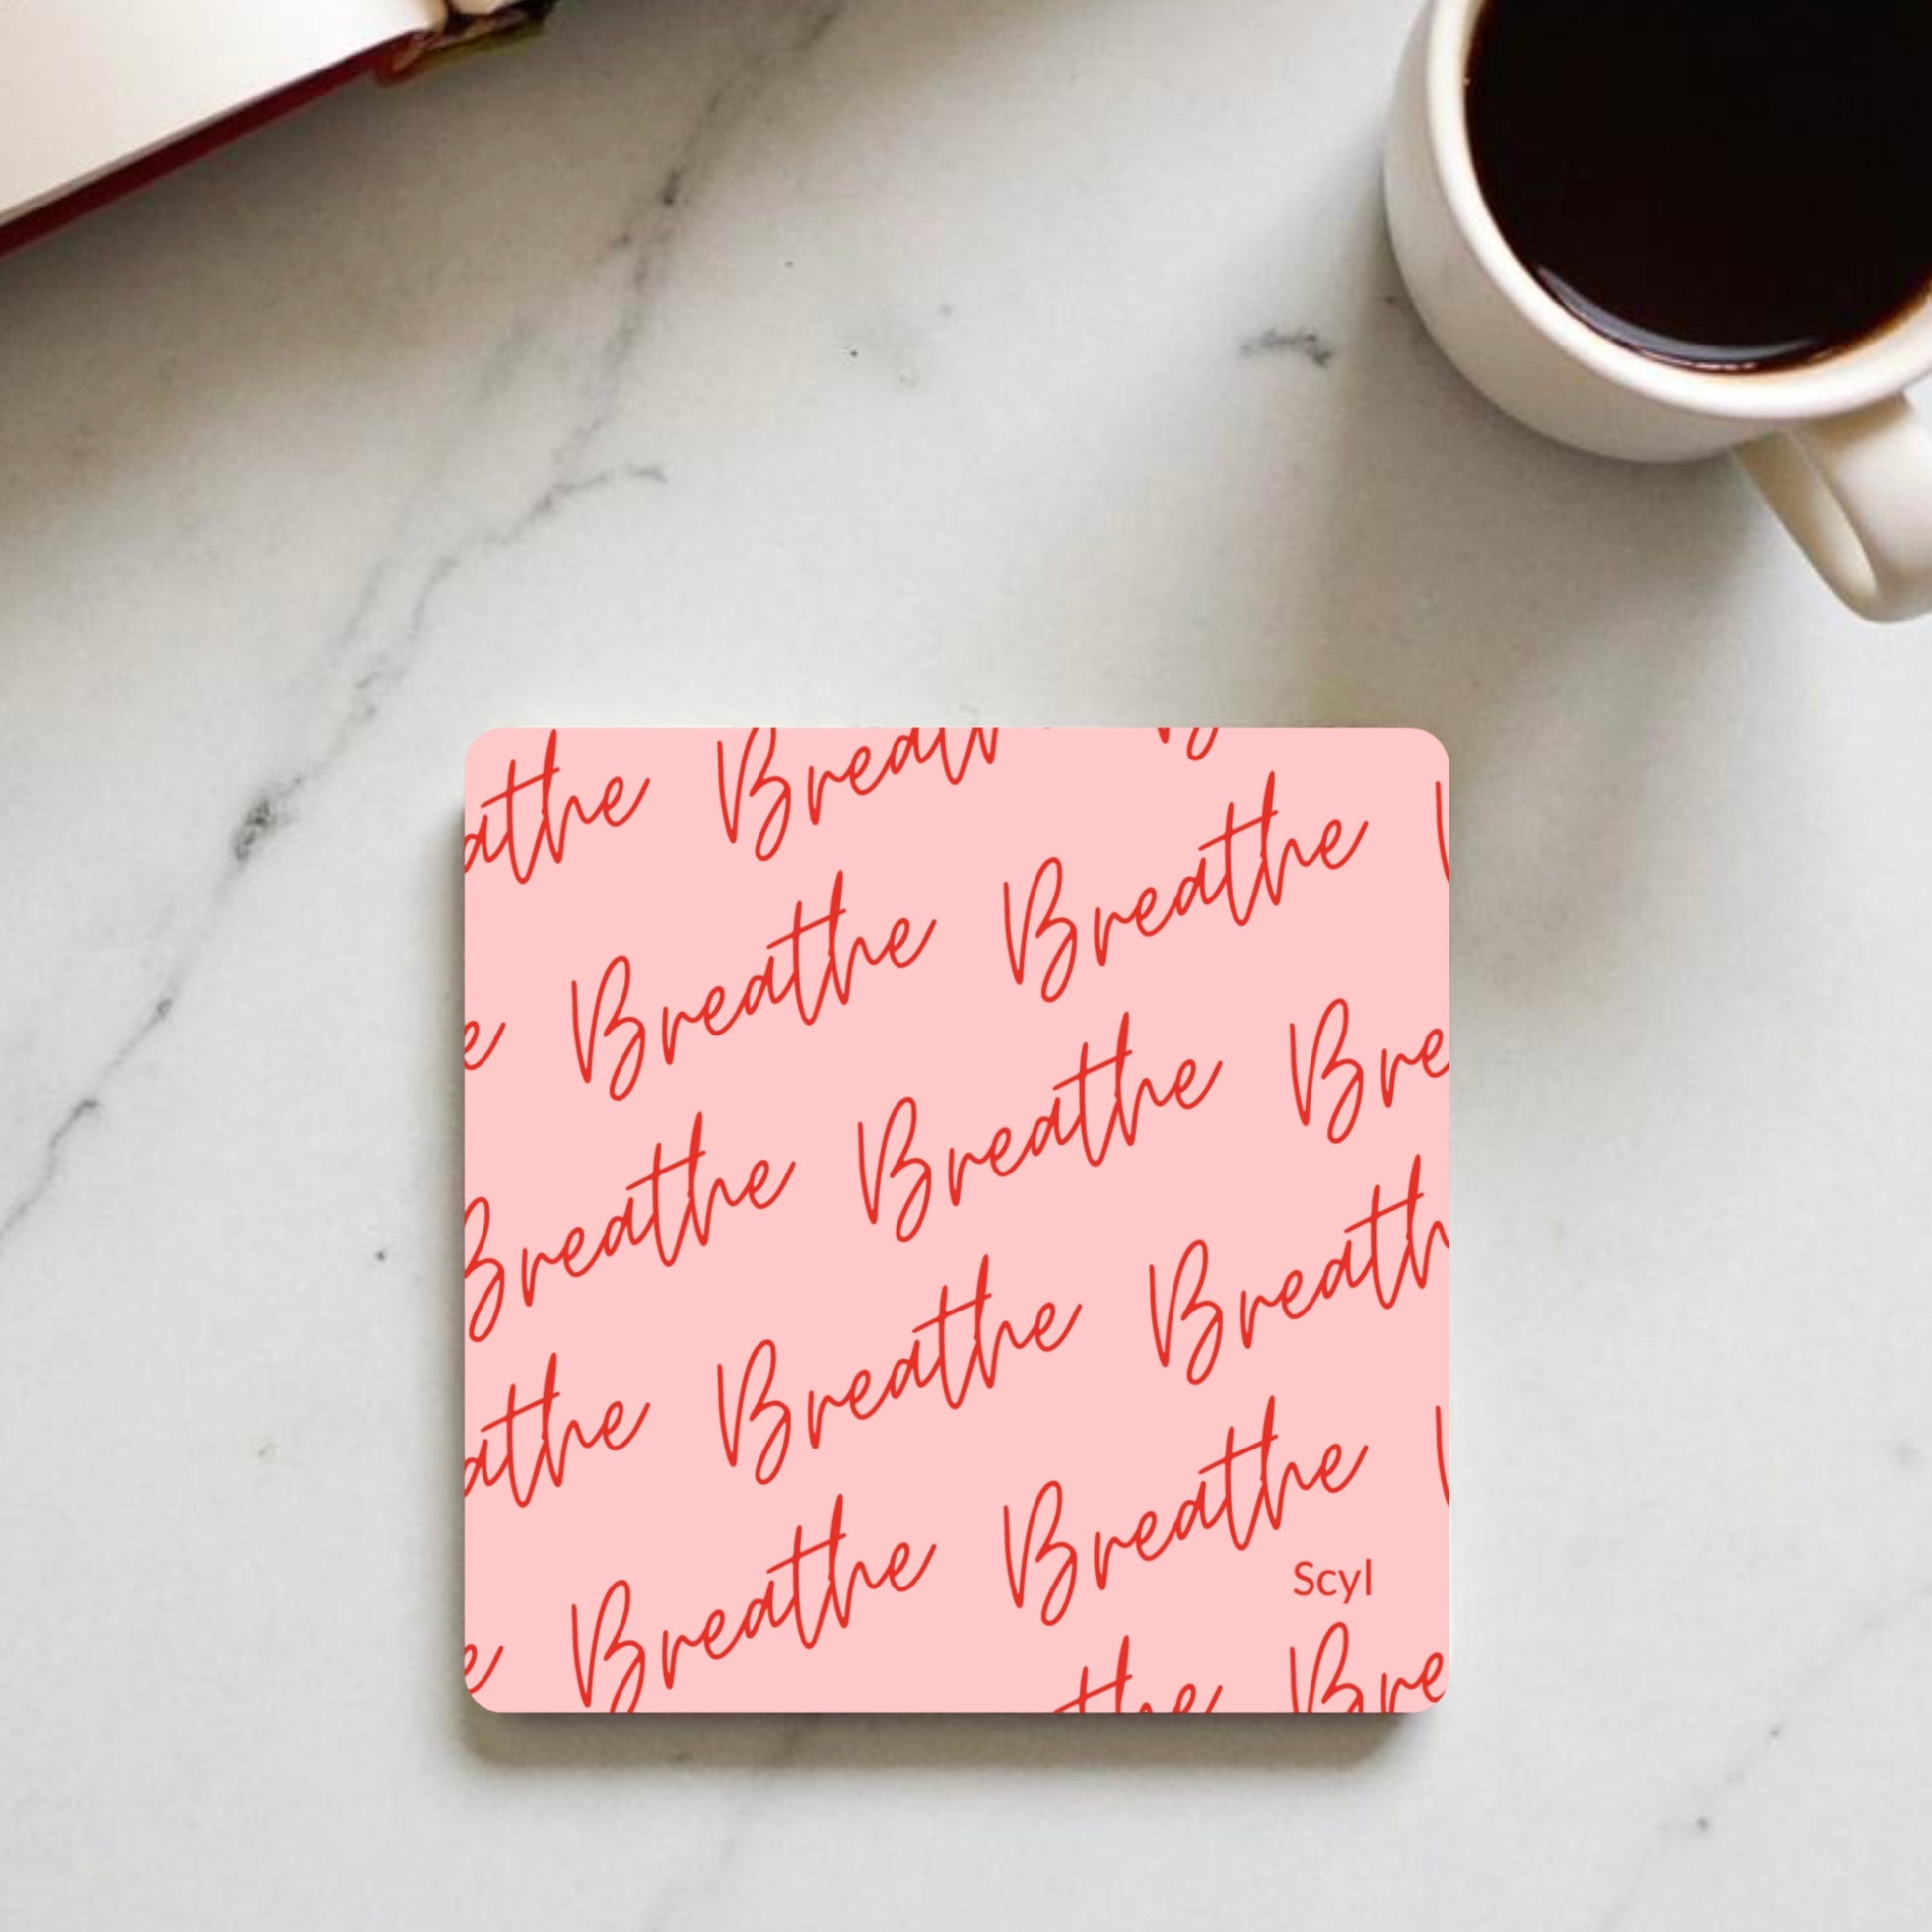 athe Breath B
e Breathe Breathe
Breathe Breathe Bre
athe Breathe Breath
e Breathe Breathe
Scyl
the Bre